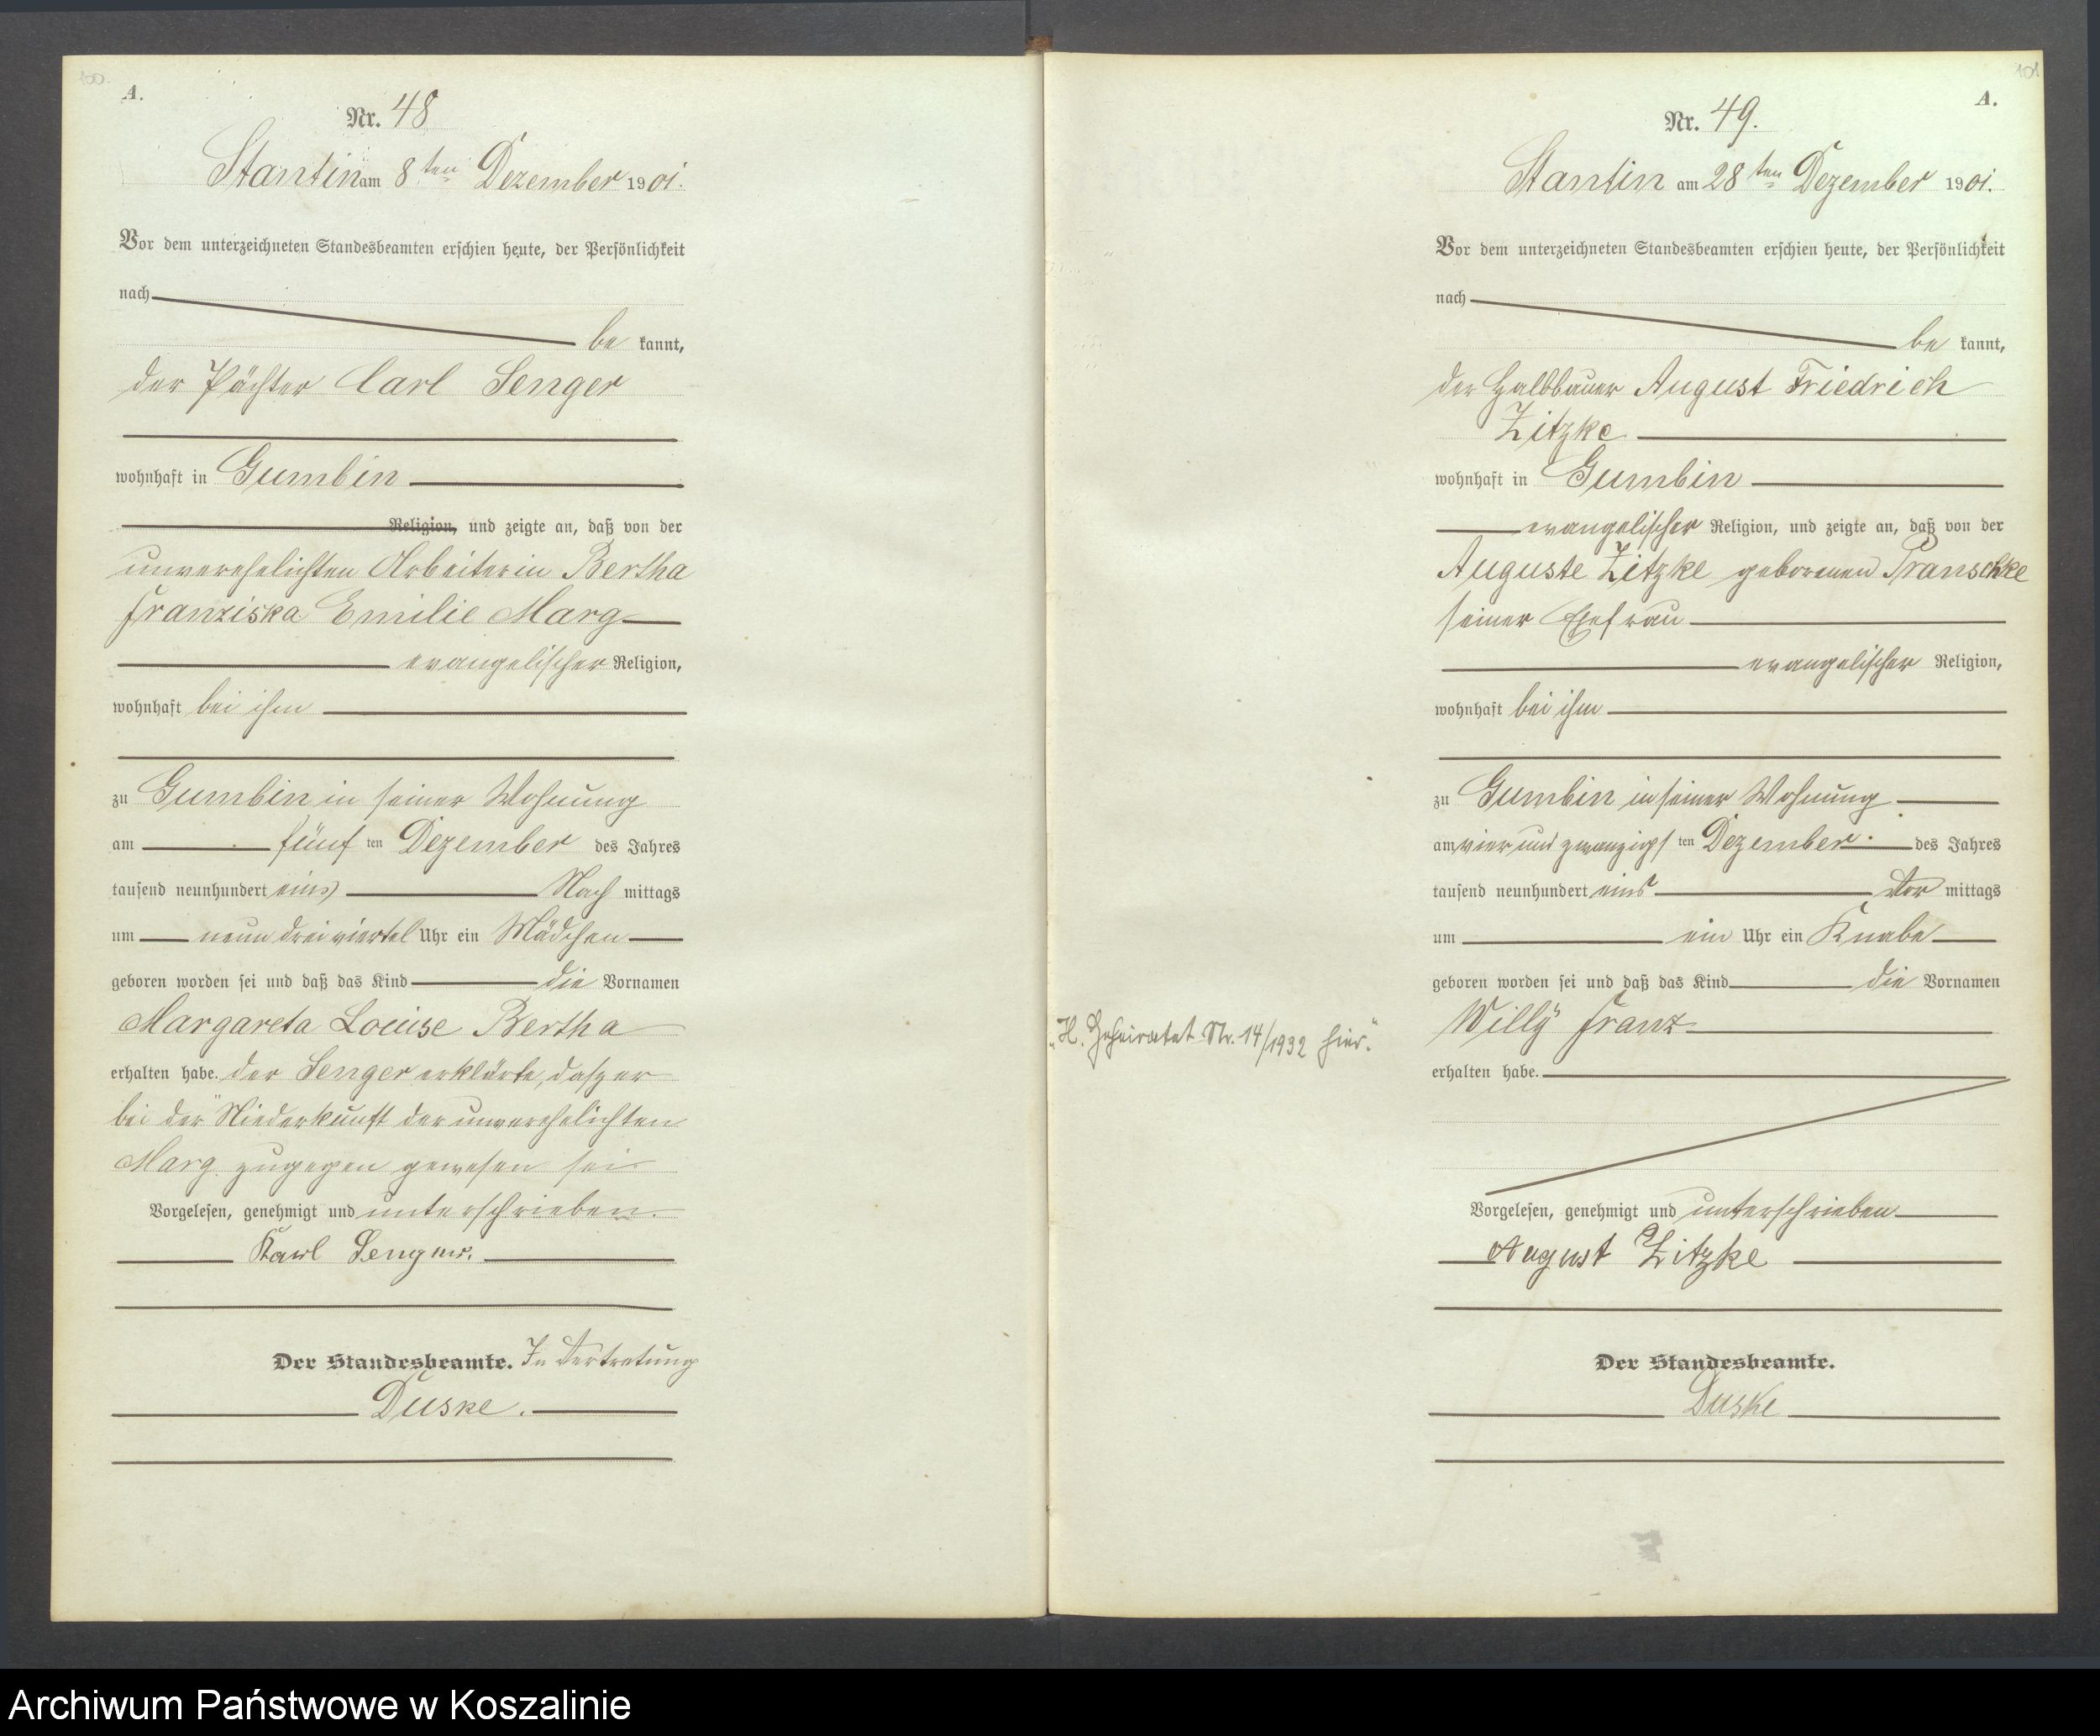 100.
A.
Nr. 48
Stantin am 8ten Dezember 1901.
Vor dem unterzeichneten Standesbeamten erschien heute, der Persönlichkeit
nach
be kannt,
der Pächter Carl Senger
wohnhaft in Gumbin
Religion, und zeigte an, daß von der
unverehelichten Arbeiterin Bertha
Franziska Emilie Marg
evangelischer Religion,
wohnhaft bei ihm
zu Gumbin in seiner Wohnung
am fünf ten Dezember des Jahres
tausend neunhundert eins Nach mittags
um neun drei viertel Uhr ein Mädchen
geboren worden sei und daß das Kind die Vornamen
Margareta Louise Bertha
erhalten habe. der Senger erklärte, dasz er
bei der Niederkunft der unverehelichten
Marg zugegen gewesen sei
Vorgelesen, genehmigt und unterschrieben.
Karl Senger.
Der Standesbeamte. In Vertretung
Duske.
101
A.
Nr. 49.
Stantin am 28ten Dezember 1901.
Vor dem unterzeichneten Standesbeamten erschien heute, der Persönlichkeit
nach
be kannt,
der Halbbauer August Friedrich
Zitzke
wohnhaft in Gumbin
evangelischer Religion, und zeigte an, daß von der
Auguste Zitzke geborenen Pranschke
seiner Ehefrau
evangelischer Religion,
wohnhaft bei ihm
zu Gumbin in seiner Wohnung
am vier und zwanzigs ten Dezember des Jahres
tausend neunhundert eins Vor mittags
um ein Uhr ein Knabe
geboren worden sei und daß das Kind die Vornamen
Willy Franz
"H. Geheiratet Nr. 14/1932 hier."
erhalten habe.
Vorgelesen, genehmigt und unterschrieben
August Zitzke
Der Standesbeamte.
Duske
Archiwum Państwowe w Koszalinie